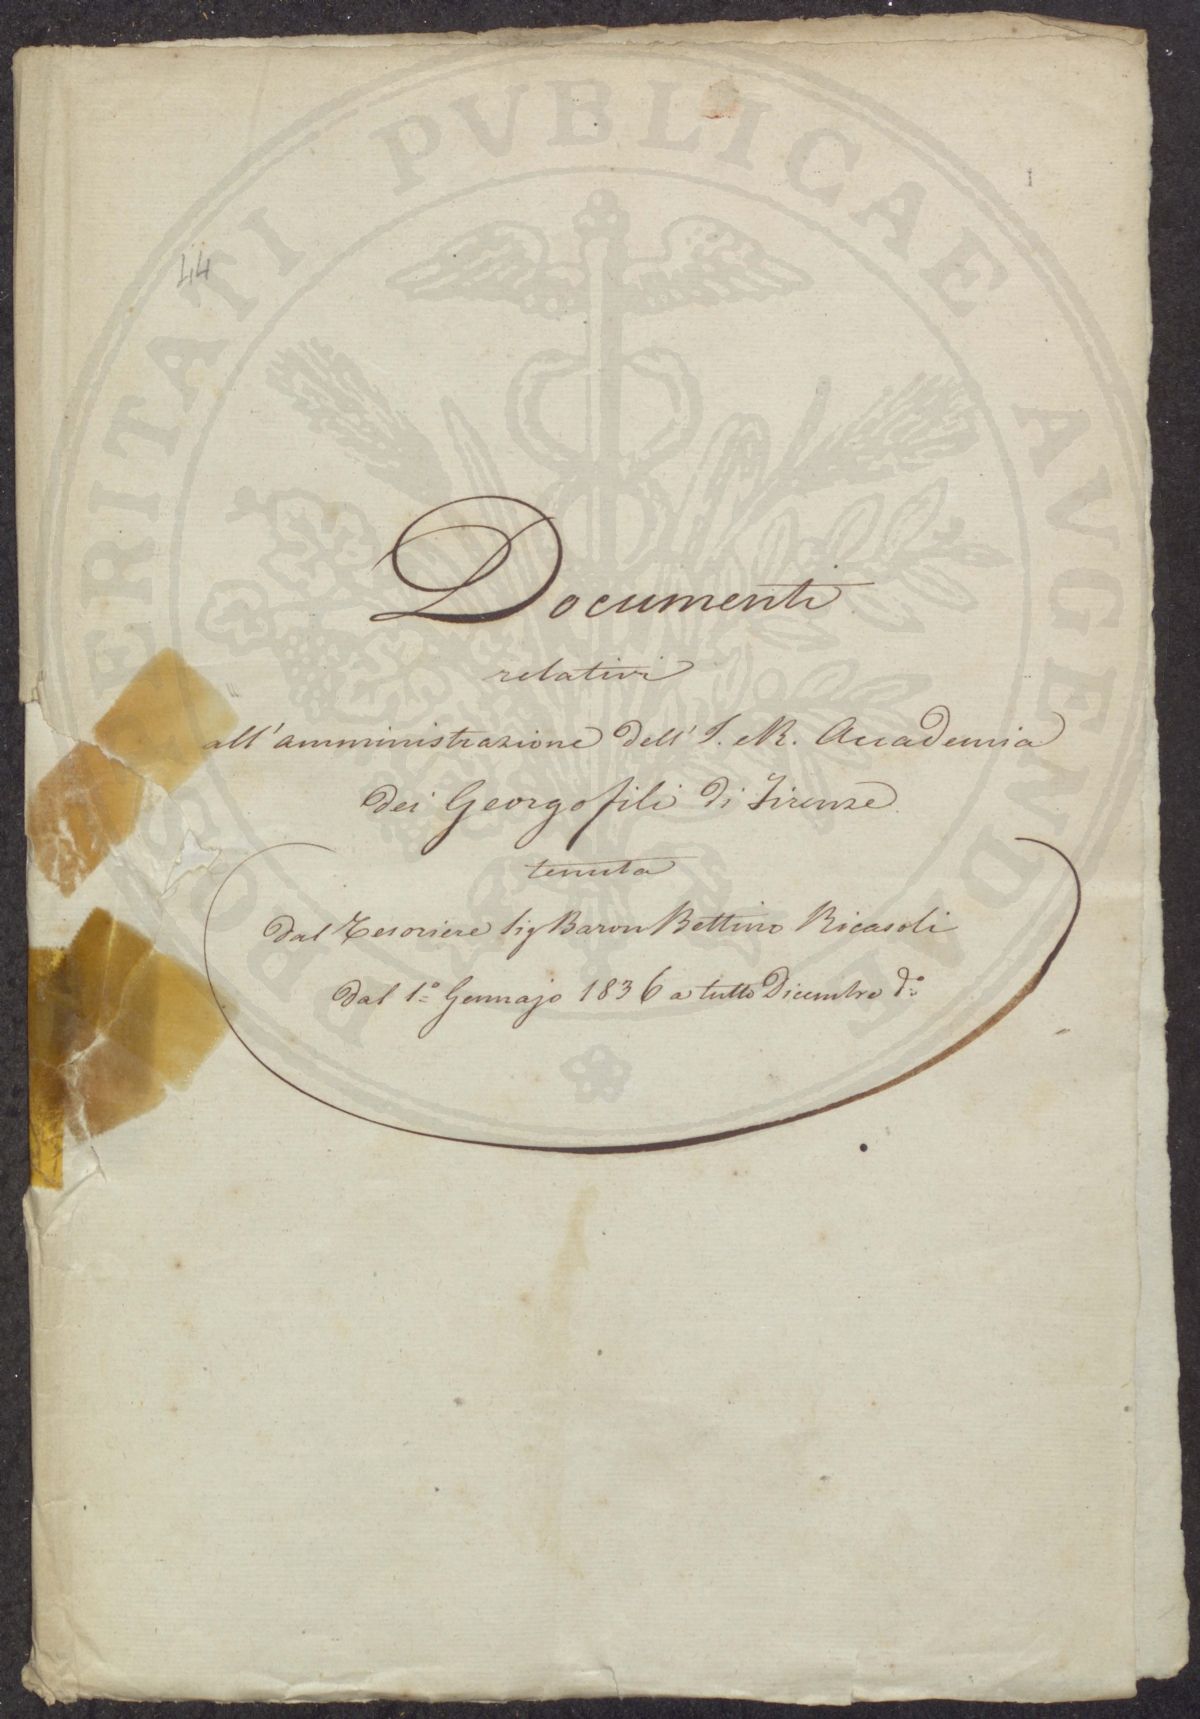 PROSPERITATI PVBLICAE AVGENDAE
1
44
Documenti
relativi
all'amministrazione dell'I. e R. Accademia
dei Georgofili di Firenze
tenuta
dal Tesoriere Sig Baron Bettino Ricasoli
dal 1.º Gennajo 1836 a tutto Dicembre d.º